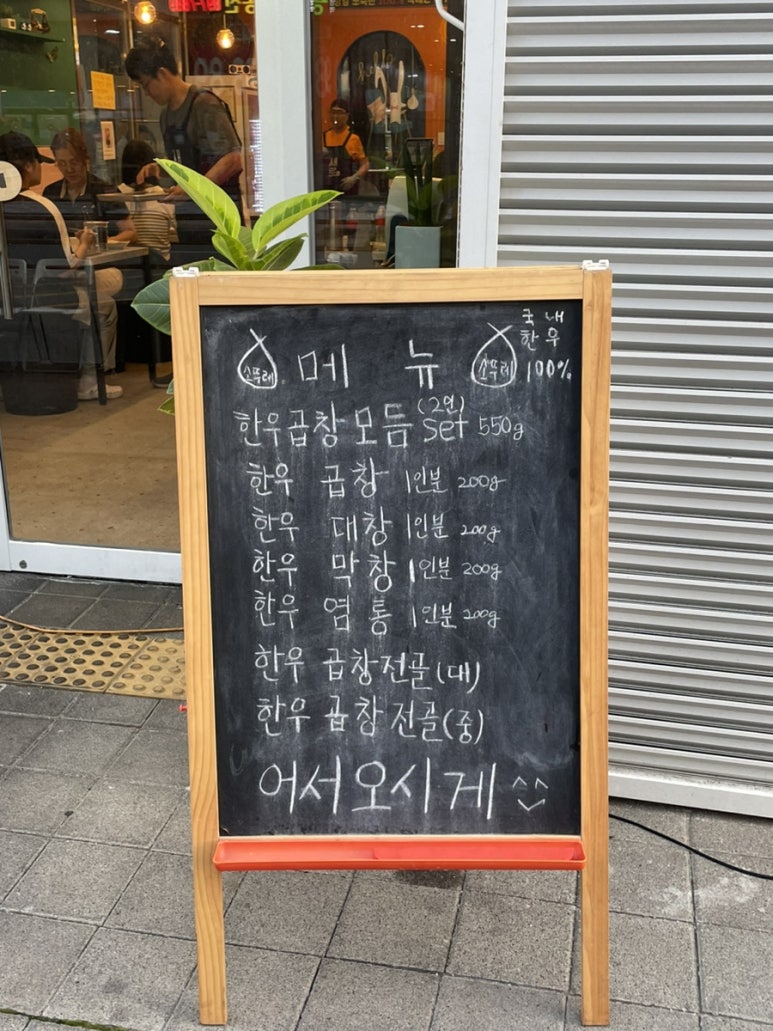 소뚜레 메 뉴 소뚜레
국 내
한 우
100%
한우곱창모듬 (2인) set 550g
한우 곱창 1인분 200g
한우 대창 1인분 200g
한우 막창 1인분 200g
한우 염통 1인분 200g
한우 곱창전골(대)
한우 곱창전골(중)
어서오시게 ^^